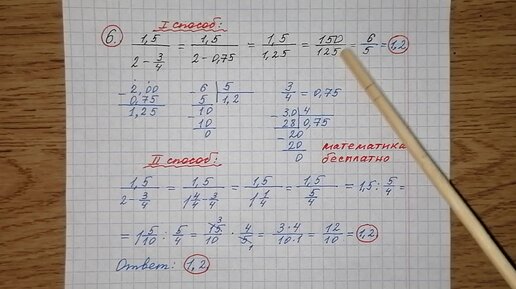 I способ:
6. 1,5/(2 - 3/4) = 1,5/(2 - 0,75) = 1,5/1,25 = 150/125 = 6/5 = 1,2
- 2,00
0,75
1,25
- 6 | 5
5 | 1,2
- 10
10
0
3/4 = 0,75
- 3,0 | 4
28 | 0,75
- 20
20
0
математика
бесплатно
II способ:
1,5/(2 - 3/4) = 1,5/(1 4/4 - 3/4) = 1,5/(1 1/4) = 1,5/(5/4) = 1,5 : 5/4 =
= 1 5/10 : 5/4 = 15/10 · 4/5 = 3·4/10·1 = 12/10 = 1,2
Ответ: 1,2